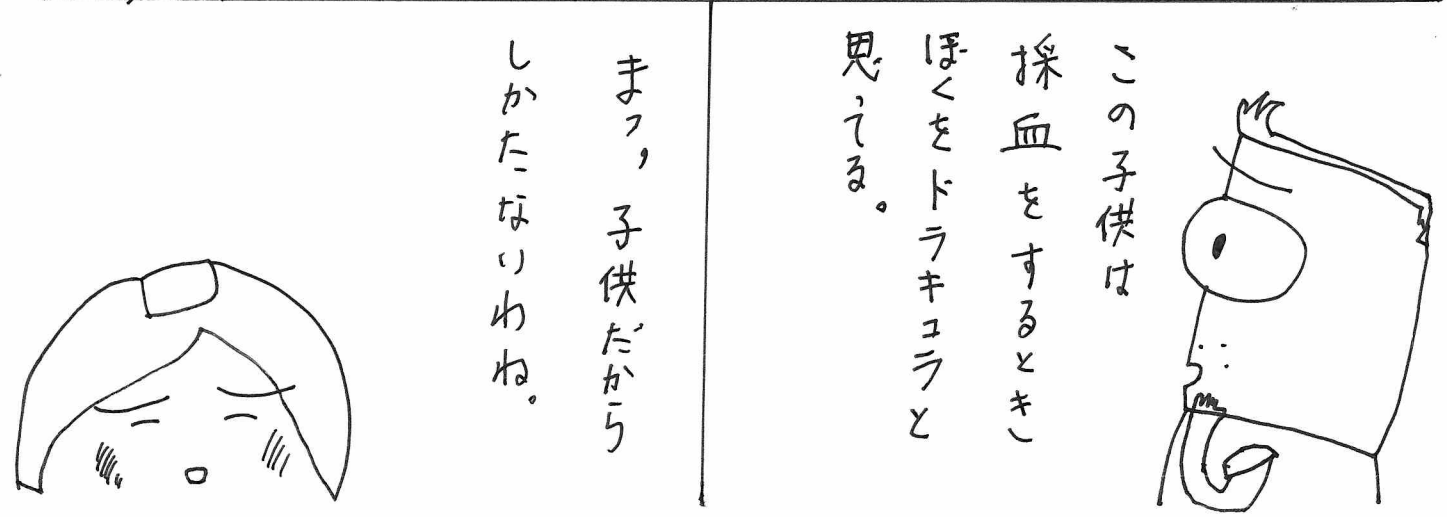 この子供は
採血をするとき
ぼくをドラキュラと
思ってる。
まっ，子供だから
しかたないわね。